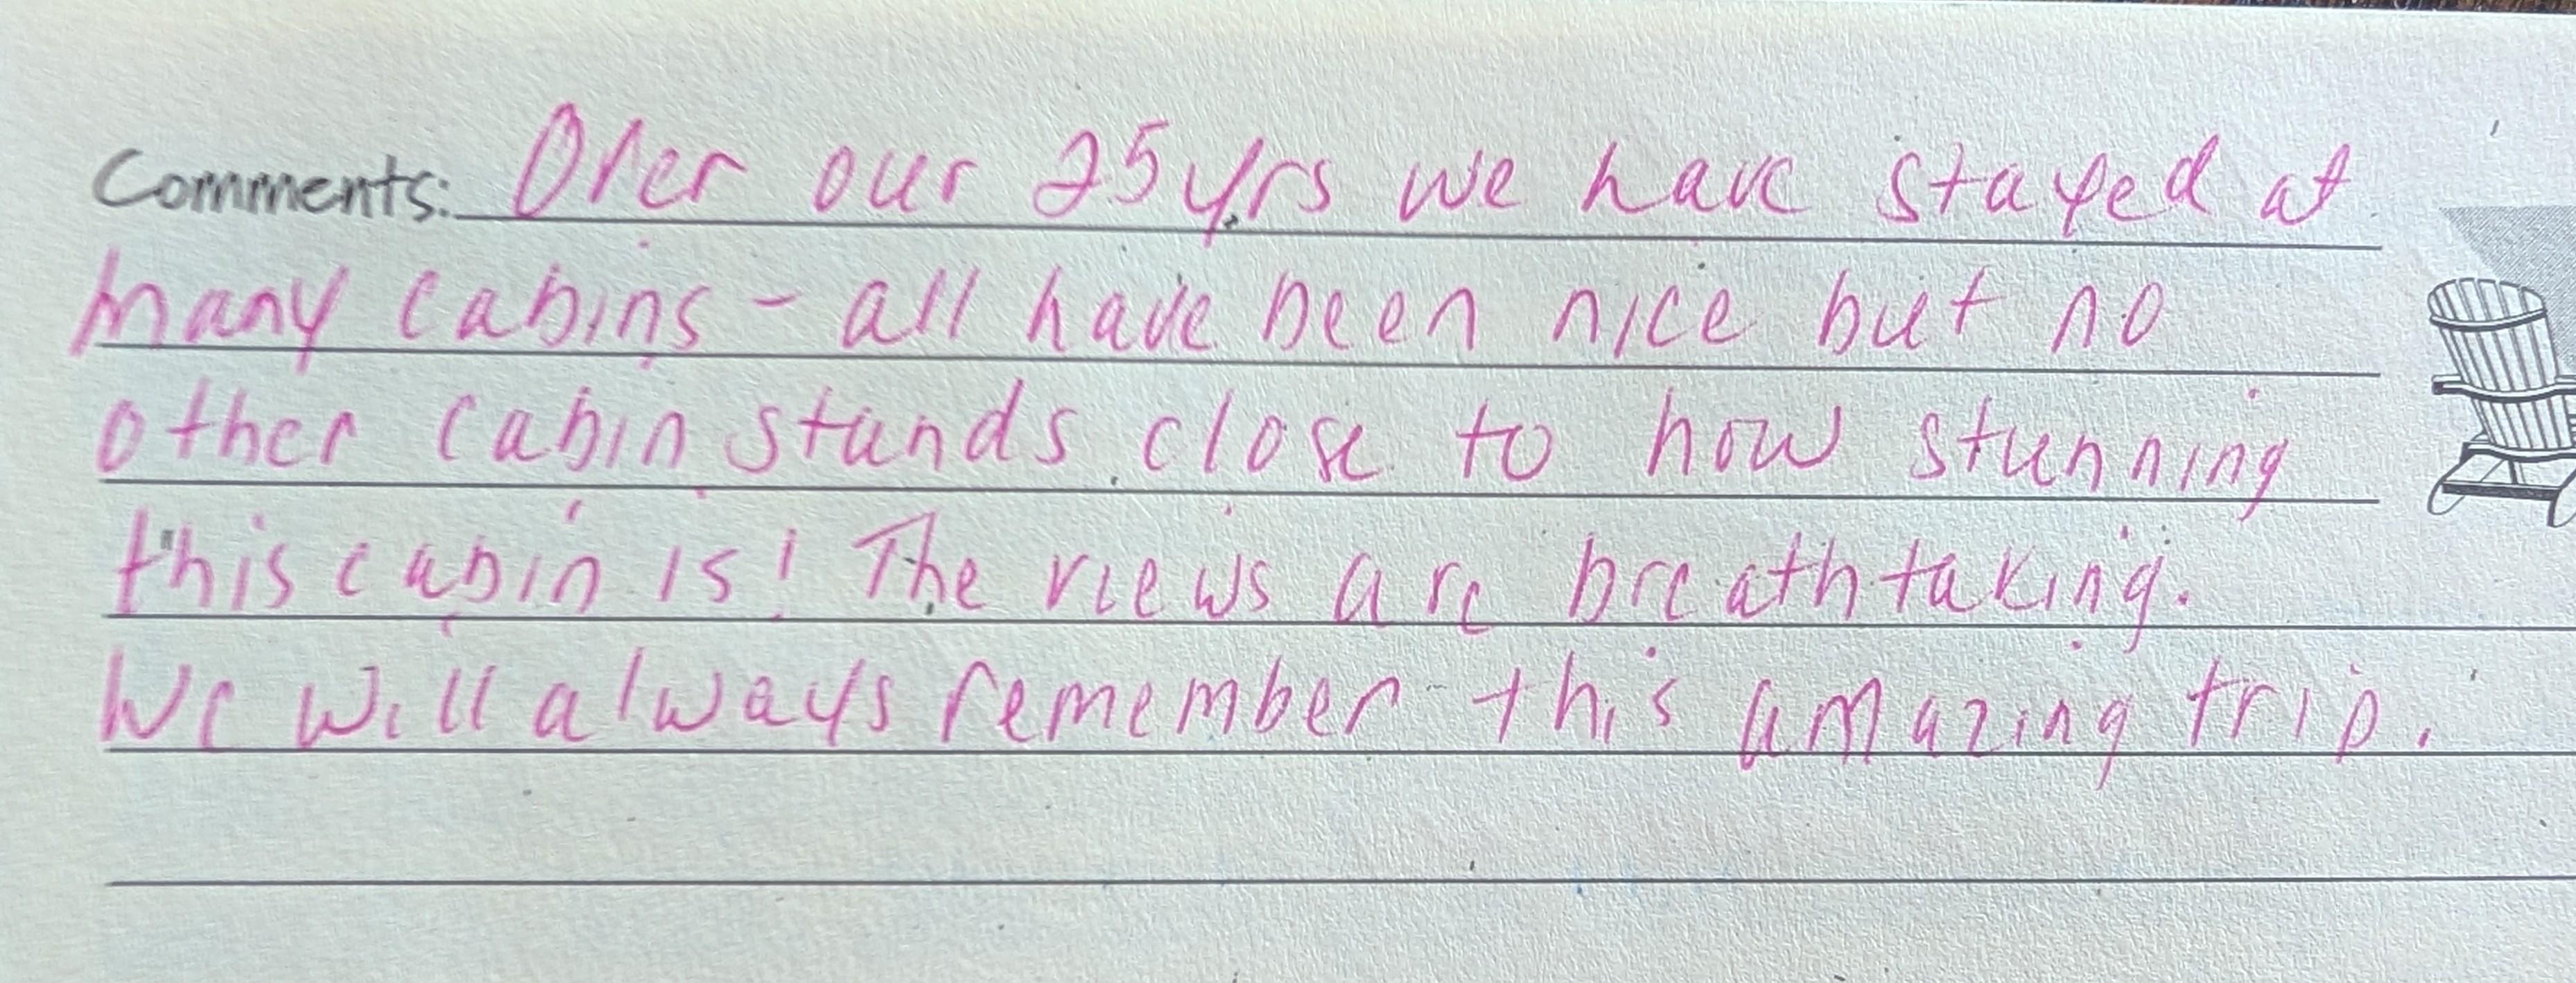 Comments: Over our 25yrs we have stayed at
many cabins - all have been nice but no
other cabin stands close to how stunning
this cabin is! The views are breathtaking.
We will always remember this amazing trip.